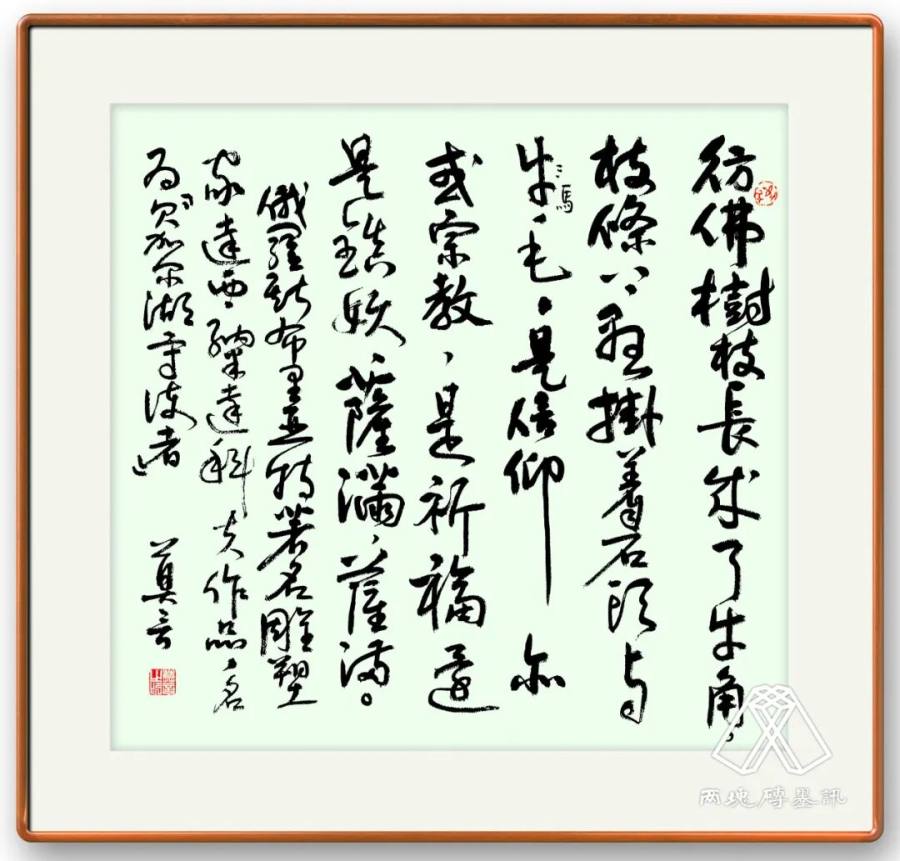 彷佛樹枝長成了牛角，
枝條上，懸掛着石頭与
牛、馬毛，是信仰亦
或宗教，是祈福還
是鎮妖，薩滿，薩滿。
俄羅斯布里亞特著名雕塑
家達西，納達科夫作品，名
为贝加尔湖守護者
莫言
两塊磚墨訊